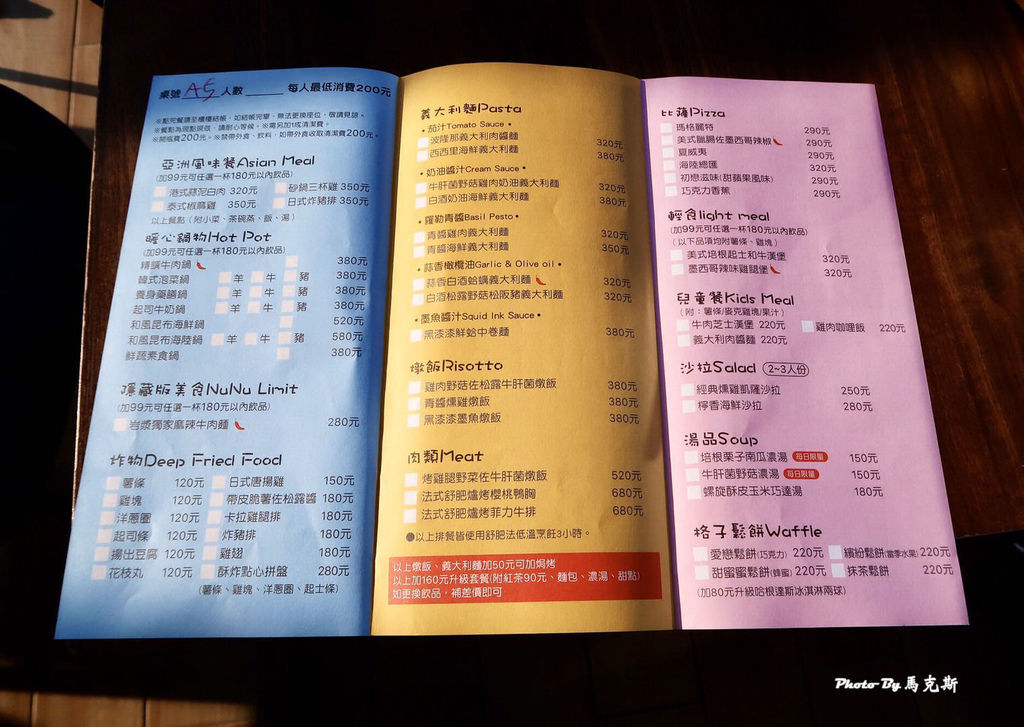 桌號 A5 人數 ______ 每人最低消費200元
※點完餐請至櫃檯結帳，如結帳完畢，無法更換座位，敬請見諒。
※餐點為現點現做，請耐心等候。※需另加1成清潔費。
※開瓶費200元。※禁帶外食、飲料，如帶外食收取清潔費200元。
亞洲風味餐Asian Meal
(加99元可任選一杯180元以內飲品)
港式蒜泥白肉 320元 砂鍋三杯雞 350元
泰式椒麻雞 350元 日式炸豬排 350元
以上餐點（附小菜、茶碗蒸、飯、湯）
暖心鍋物Hot Pot
(加99元可任選一杯180元以內飲品)
精饌牛肉鍋 380元
韓式泡菜鍋 羊 牛 豬 380元
養身藥膳鍋 羊 牛 豬 380元
起司牛奶鍋 羊 牛 豬 380元
和風昆布海鮮鍋 520元
和風昆布海陸鍋 羊 牛 豬 580元
鮮蔬素食鍋 380元
隱藏版美食NuNu Limit
(加99元可任選一杯180元以內飲品)
岩漿獨家麻辣牛肉麵 280元
炸物Deep Fried Food
薯條 120元 日式唐揚雞 150元
雞塊 120元 帶皮脆薯佐松露醬 180元
洋蔥圈 120元 卡拉雞腿排 180元
起司條 120元 炸豬排 180元
揚出豆腐 120元 雞翅 180元
花枝丸 120元 酥炸點心拼盤 280元
(薯條、雞塊、洋蔥圈、起士條)
義大利麵Pasta
• 茄汁Tomato Sauce •
波隆那義大利肉醬麵 320元
西西里海鮮義大利麵 380元
• 奶油醬汁Cream Sauce •
牛肝菌野菇雞肉奶油義大利麵 320元
白酒奶油海鮮義大利麵 380元
• 羅勒青醬Basil Pesto •
青醬雞肉義大利麵 320元
青醬海鮮義大利麵 350元
• 蒜香橄欖油Garlic & Olive oil •
蒜香白酒蛤蠣義大利麵 320元
白酒松露野菇松阪豬義大利麵 320元
• 墨魚醬汁Squid Ink Sauce •
黑漆漆鮮蛤中卷麵 380元
燉飯Risotto
雞肉野菇佐松露牛肝菌燉飯 380元
青醬燻雞燉飯 380元
黑漆漆墨魚燉飯 380元
肉類Meat
烤雞腿野菜佐牛肝菌燉飯 520元
法式舒肥爐烤櫻桃鴨胸 680元
法式舒肥爐烤菲力牛排 680元
●以上排餐皆使用舒肥法低溫烹飪3小時。
以上燉飯、義大利麵加50元可加焗烤
以上加160元升級套餐(附紅茶90元、麵包、濃湯、甜點)
如更換飲品，補差價即可
比薩Pizza
瑪格麗特 290元
美式臘腸佐墨西哥辣椒 290元
夏威夷 290元
海陸總匯 320元
初戀滋味(甜蘋果風味) 290元
巧克力香蕉 290元
輕食light meal
(加99元可任選一杯180元以內飲品)
(以下品項均附薯條、雞塊)
美式培根起士和牛漢堡 320元
墨西哥辣味雞腿堡 320元
兒童餐Kids Meal
(附：薯條/麥克雞塊/果汁)
牛肉芝士漢堡 220元 雞肉咖哩飯 220元
義大利肉醬麵 220元
沙拉Salad 2~3人份
經典燻雞凱薩沙拉 250元
檸香海鮮沙拉 280元
湯品Soup
培根栗子南瓜濃湯 每日限量 150元
牛肝菌野菇濃湯 每日限量 150元
螺旋酥皮玉米巧達湯 180元
格子鬆餅Waffle
愛戀鬆餅(巧克力) 220元 繽紛鬆餅(當季水果) 220元
甜蜜蜜鬆餅(蜂蜜) 220元 抹茶鬆餅 220元
(加80元升級哈根達斯冰淇淋兩球)
Photo By 馬克斯